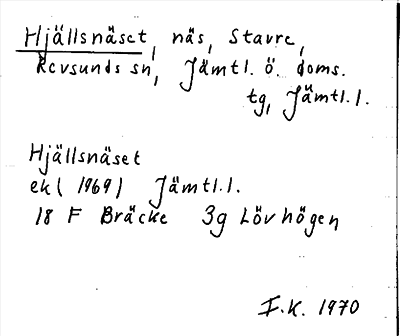 Hjällsnäset, näs, Stavre,
Revsunds sn, Jämtl. ö. doms.
tg, Jämtl. l.
Hjällsnäset
ek ( 1969) Jämtl. l.
18 F Bräcke 3g Lövhögen
I.K. 1970